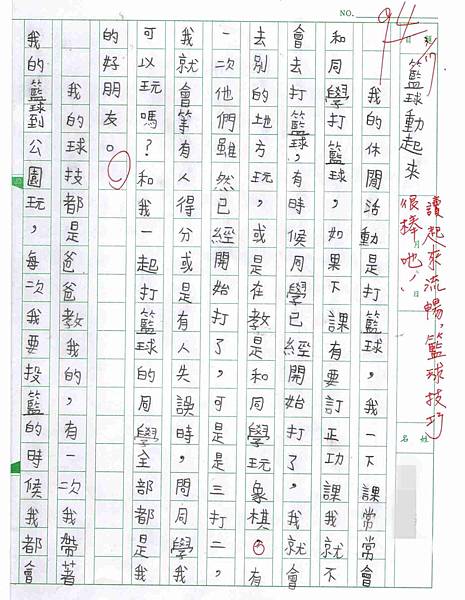 NO.
94
籃球動起來
讀起來流暢,籃球技巧
很棒吔!
月
日
姓名
我的休閒活動是打籃球,我一下課常常會
和同學打籃球,如果下課有要訂正功課我就不
會去打籃球,有時候同學已經開始打了,我就會
去別的地方玩,或是在教是和同學玩象棋。有
一次他們雖然已經開始打了,可是是三打二,
我就會等有人得分或是有人失誤時,問同學我
可以玩嗎?和我一起打籃球的同學全部都是我
的好朋友。
我的球技都是爸爸教我的,有一次我帶著
我的籃球到公園玩,每次我要投籃的時候我都會